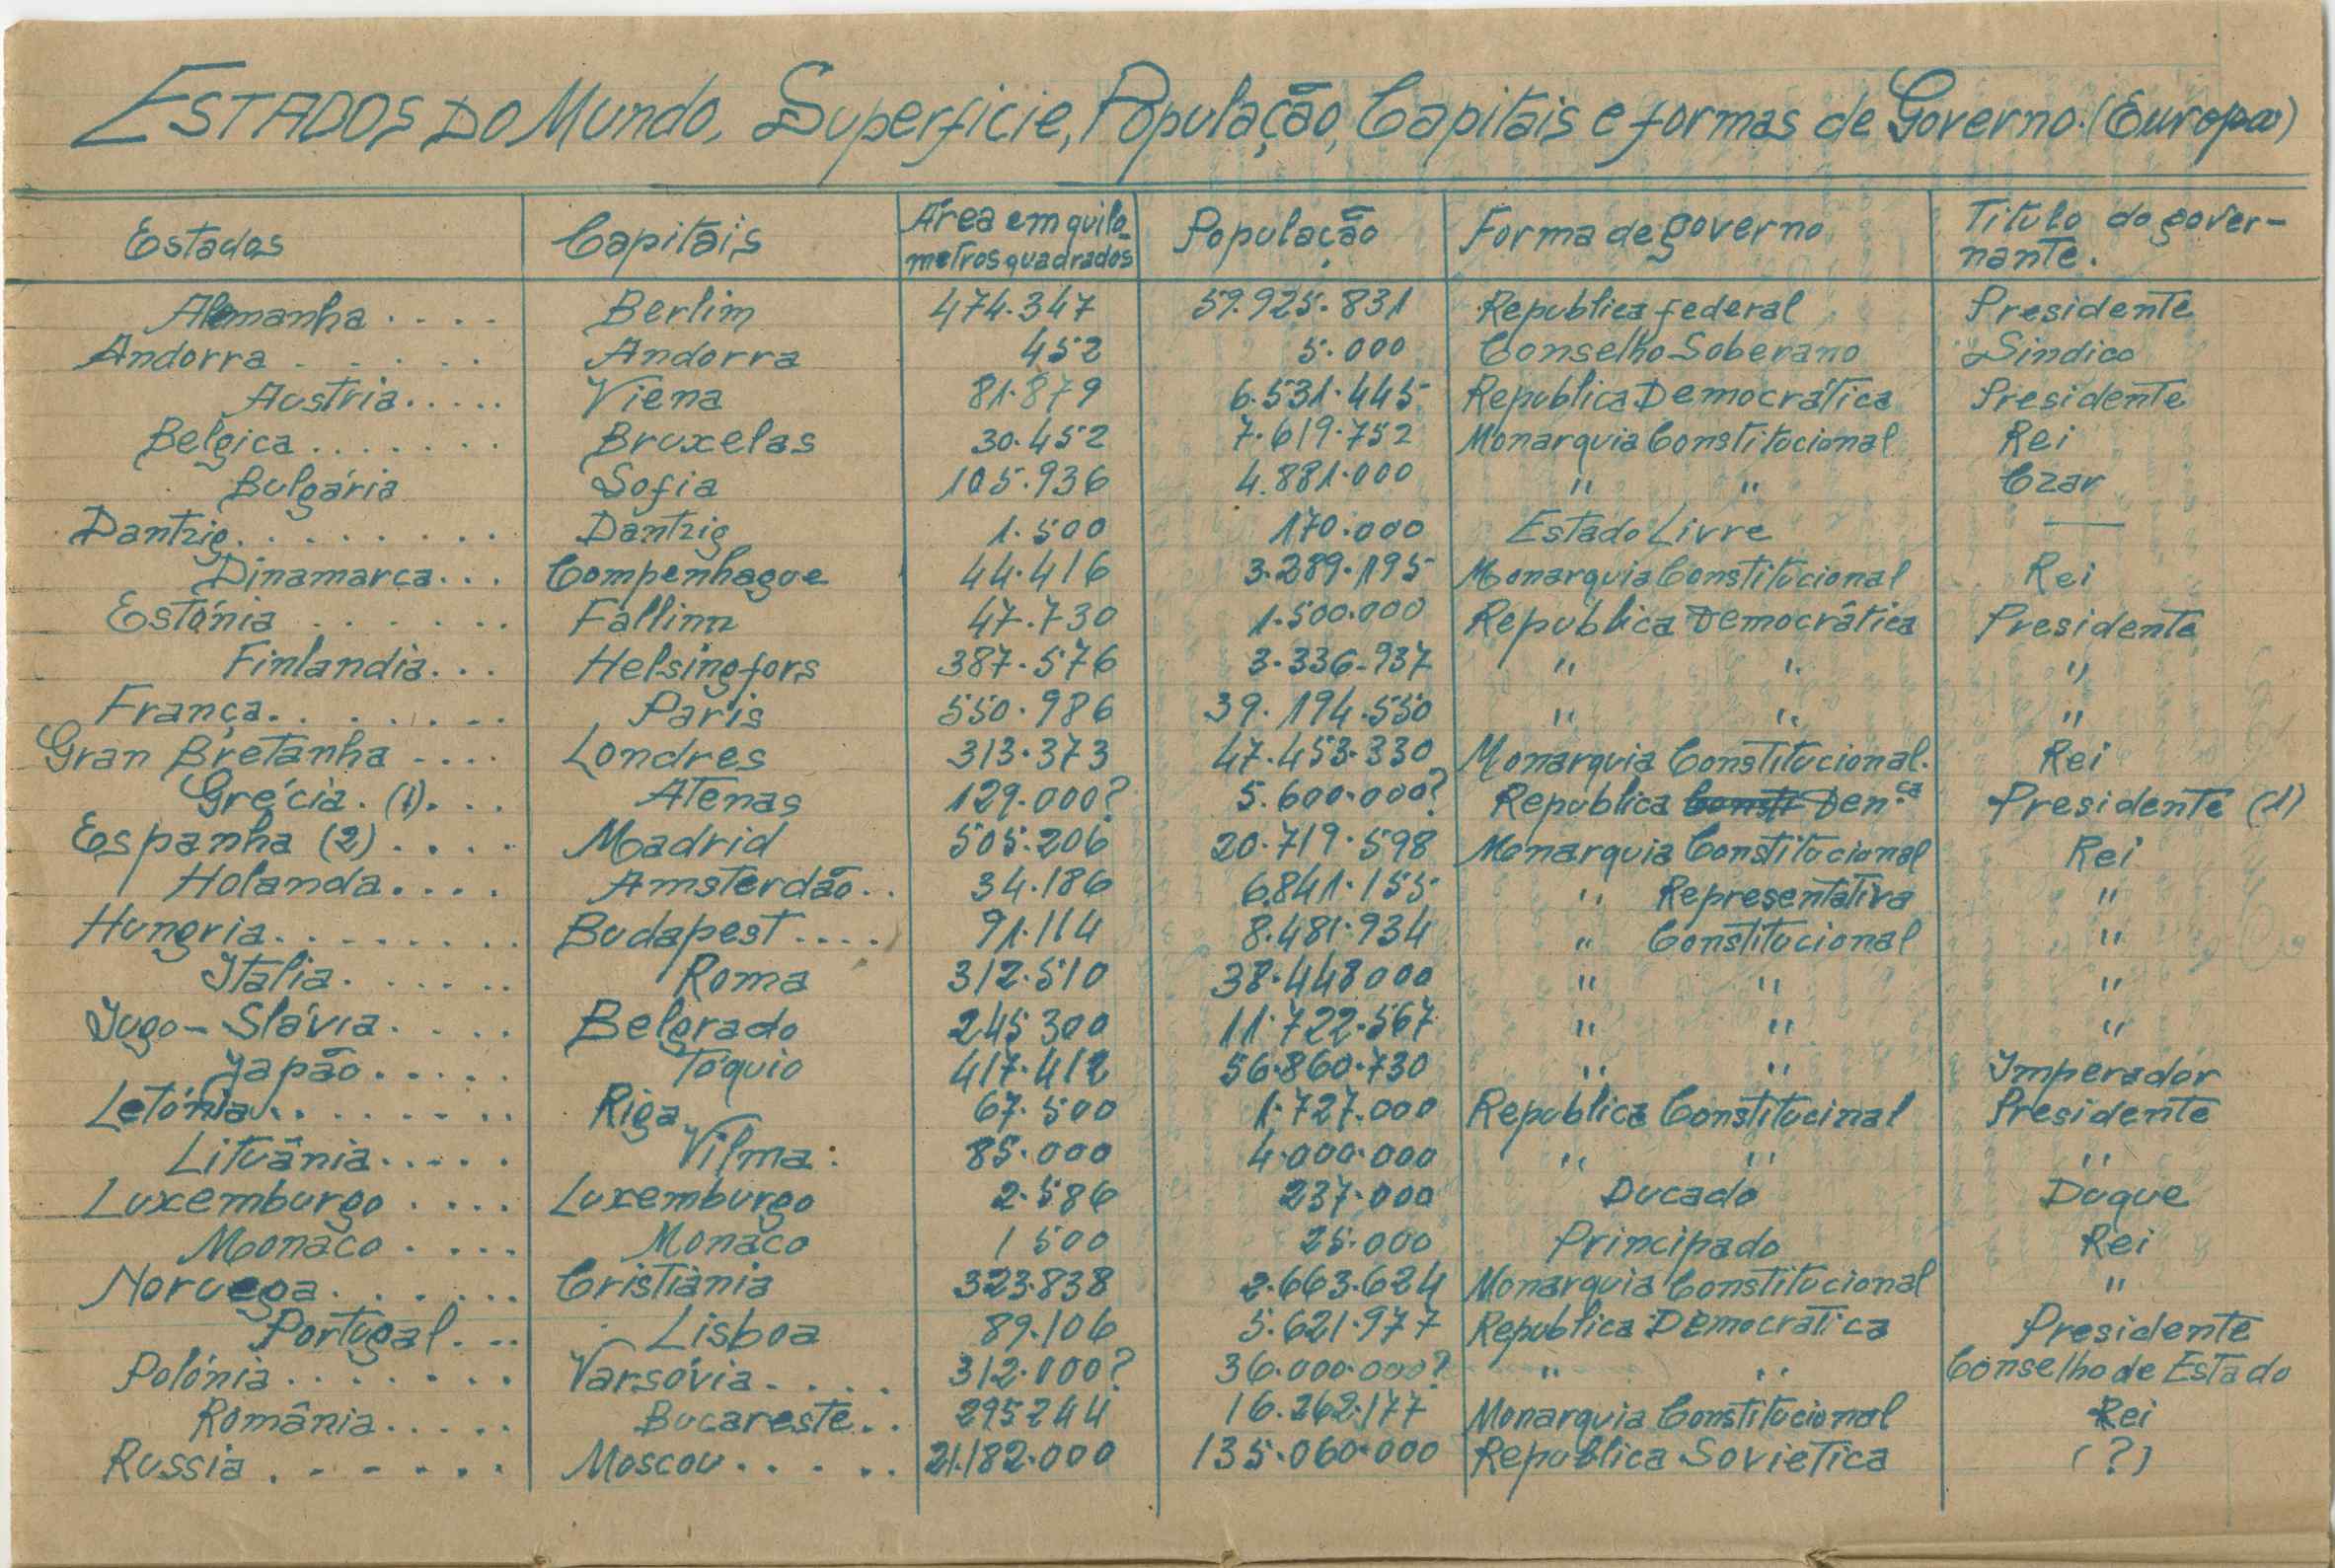 ESTADOS DO Mundo, Superficie, População, Capitais e formas de Governo. (Europa)
Estados Capitais Area em quilo- metros quadrados População Forma de governo Titulo do gover- nante.
Alemanha . . . . Berlim 474.347 59.925.831 Republica federal Presidente
Andorra . . . . . Andorra 452 5.000 Conselho Soberano Sindico
Austria . . . . . Viena 81.879 6.531.445 Republica Democrática Presidente
Belgica . . . . . . . Bruxelas 30.452 7.619.752 Monarquia Constitucional Rei
Bulgária Sofia 105.936 4.881.000 " " Czar
Dantzig . . . . . . . . Dantzig 1.500 170.000 Estado Livre —
Dinamarca . . . Compenhague 44.416 3.289.195 Monarquia Constitucional Rei
Estónia . . . . . . Fallinn 47.730 1.500.000 Republica Democrática Presidente
Finlandia . . . Helsingfors 387.576 3.336.937 " " "
França . . . . . . . Paris 550.986 39.194.550 " " "
Gran Bretanha . . . . Londres 313.373 47.453.330 Monarquia Constitucional. Rei
Grécia. (1) . . . Atenas 129.000? 5.600.000? Republica Consti Den.ca Presidente (1)
Espanha (2) . . . . Madrid 505.206 20.719.598 Monarquia Constitucional Rei
Holanda . . . . Amsterdão . . 34.186 6.841.155 " Representativa "
Hungria . . . . . . . . Budapest . . . . 91.114 8.481.934 " Constitucional "
Italia . . . . . . Roma 312.510 38.448000 " " "
Jugo-Slávia . . . . Belgrado 245300 11.722.567 " " "
Japão . . . . . Tóquio 417.412 56.860.730 " " Imperador
Letónia . . . . . . . Riga 67.500 1.727.000 Republica Constitucinal Presidente
Lituânia . . . . . Vilma : 85.000 4.000.000 " " "
Luxemburgo . . . . Luxemburgo 2.586 237.000 Ducado Duque
Monaco . . . . Monaco 1 500 25.000 Principado Rei
Noruega . . . . . . Cristiània 323.838 2.663.624 Monarquia Constitucional "
Portugal . . . Lisboa 89.106 5.621.977 Republica Democratica Presidente
Polónia . . . . . . . Varsóvia . . . . 312.000? 36.000.000? " " Conselho de Estado
Românía . . . . . Bucareste . . 295244 16.262.177 Monarquia Constitucional Rei
Russia . . . . . . Moscou . . . . . 21.182.000 135.060.000 Republica Sovietica (?)